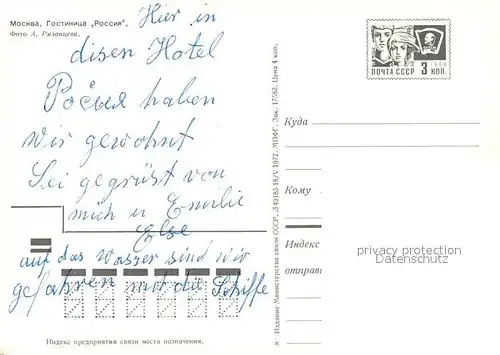 Москва. Гостиница „Россия".
Фото А. Рязанцева.
Hier in
disen Hotel
Росыя haben
wir gewohnt
Sei gegrüst von
mich u Emilie
Else
auf das Wasser sind wir
gefahren mit die Schiffe
Индекс предприятия связи места назначения.
Издание Министерства связи СССР. Л 49185 18/V 1972. МПФГ. Зак. 17583. Цена 4 коп.
1966
ПОЧТА СССР 3 КОП.
Куда
Кому
Индекс
отправи
privacy protection
Datenschutz